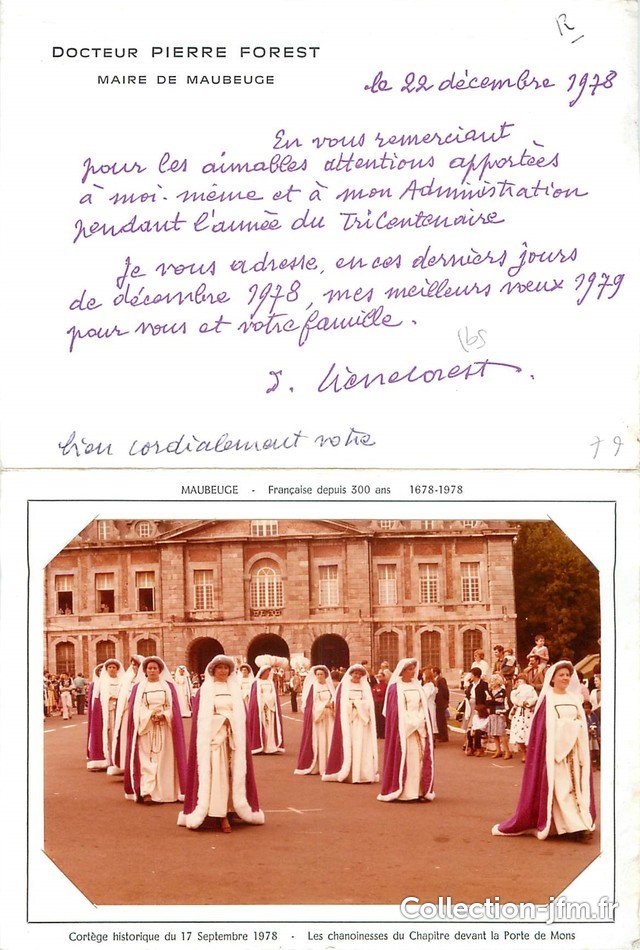 R
DOCTEUR PIERRE FOREST
MAIRE DE MAUBEUGE
le 22 décembre 1978
En vous remerciant
pour les aimables attentions apportées
à moi-même et à mon Administration
pendant l'année du TriCentenaire
Je vous adresse, en ces derniers jours
de décembre 1978, mes meilleurs vœux 1979
pour vous et votre famille.
bien cordialement votre
79
MAUBEUGE - Française depuis 300 ans 1678-1978
Collection-jfm.fr
Cortège historique du 17 Septembre 1978 - Les chanoinesses du Chapitre devant la Porte de Mons